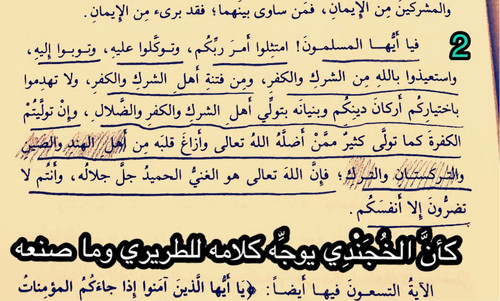 والمشركين مِن الإيمانِ، فمَن ساوى بينهما؛ فقد برىء مِن الإيمانِ.
2
فيا أيُّها المسلمونَ! امتثِلوا أمرَ ربِّكُم، وتوكَّلوا عليهِ، وتوبوا إليهِ،
واستعيذوا باللهِ مِن الشركِ والكفرِ، ومِن فتنةِ أهلِ الشركِ والكفرِ، ولا تهدموا
باختيارِكُم أركانَ دينِكُم وبنيانَه بتولِّي أهلِ الشركِ والكفرِ والضَّلالِ، وإنْ تولَّيتُمْ
الكفرةَ كما تولَّى كثيرٌ ممَّنْ أضلَّهُ اللهُ تعالى وأزاغَ قلبَه مِن أهلِ الهندِ والصِّينِ
والتركستانِ والتركِ؛ فإنَّ اللهَ تعالى هو الغنيُّ الحميدُ جلَّ جلالُه، وأنتُم لا
تضرُّونَ إلا أنفسَكُم.
كأنَّ الخُجَنْدِي يوجِّه كلامه للطريري وما صنعه
الآيةُ التسعونَ فيها أيضاً: ﴿يَا أَيُّها الَّذينَ آمَنُوا إِذا جاءَكُمُ المُؤمِناتُ